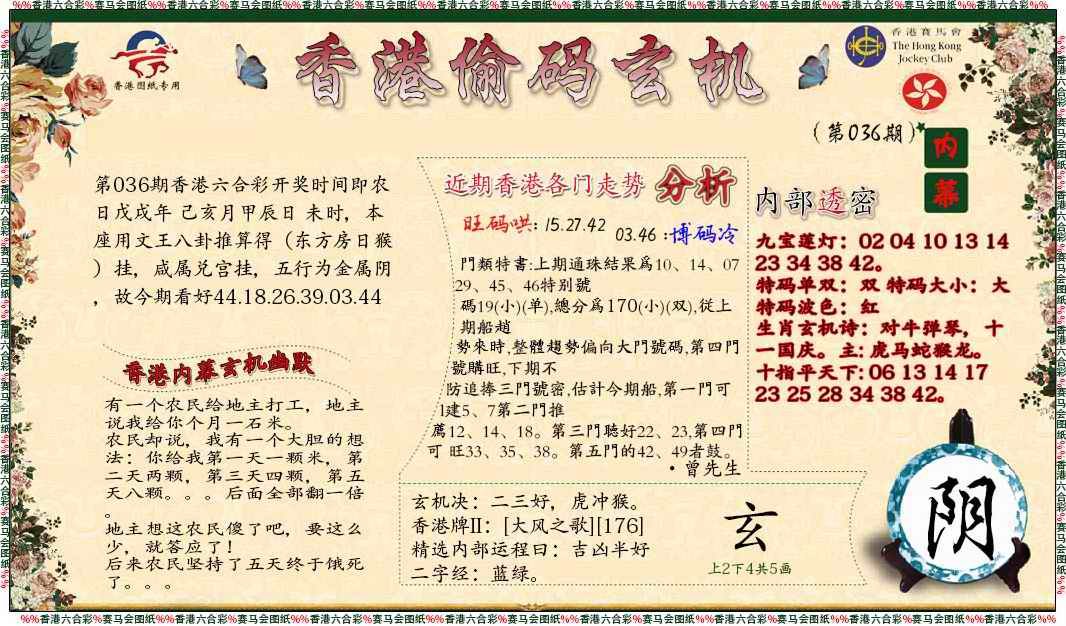 %%香港六合彩%赛马会图纸%%香港六合彩%赛马会图纸%%香港六合彩%赛马会图纸%%香港六合彩%赛马会图纸%%香港六合彩%赛马会图纸%%香港六合彩%赛马会图纸%%香港六合彩%赛马会图纸%%香港六合彩%%
香港图纸专用
香港偷码玄机
香港賽馬會
The Hong Kong
Jockey Club
(第036期)
内
幕
第036期香港六合彩开奖时间即农
日戊戌年 己亥月甲辰日 未时，本
座用文王八卦推算得（东方房日猴
）挂，咸属兑宫挂，五行为金属阴
，故今期看好44.18.26.39.03.44
香港内幕玄机幽默
有一个农民给地主打工，地主
说我给你个月一石米。
农民却说，我有一个大胆的想
法：你给我第一天一颗米，第
二天两颗，第三天四颗，第五
天八颗。。。后面全部翻一倍
。
地主想这农民傻了吧，要这么
少，就答应了！
后来农民坚持了五天终于饿死
了。。。
近期香港各门走势 分析
旺码哄: 15.27.42
03.46 :博码冷
門類特書:上期通珠結果爲10、14、07
29、45、46特别號
碼19(小)(单),總分爲170(小)(双),從上
期船趙
勢來時,整體趨勢偏向大門號碼,第四門
號購旺,下期不
防追捧三門號密,估計今期船,第一門可
1建5、7第二門推
薦12、14、18。第三門聽好22、23,第四門
可 旺33、35、38。第五門的42、49者鼓。
·曾先生
玄机决：二三好，虎冲猴。
香港牌II：[大风之歌][176]
精选内部运程曰：吉凶半好
二字经：蓝绿。
玄
上2下4共5画
内部透密
九宝莲灯：02 04 10 13 14
23 34 38 42。
特码单双：双 特码大小：大
特码波色：红
生肖玄机诗：对牛弹琴，十
一国庆。主: 虎马蛇猴龙。
十指平天下: 06 13 14 17
23 25 28 34 38 42。
阴
%%香港六合彩%赛马会图纸%%香港六合彩%赛马会图纸%%香港六合彩%赛马会图纸%%香港六合彩%赛马会图纸%%香港六合彩%赛马会图纸%%香港六合彩%赛马会图纸%%香港六合彩%赛马会图纸%%香港六合彩%%